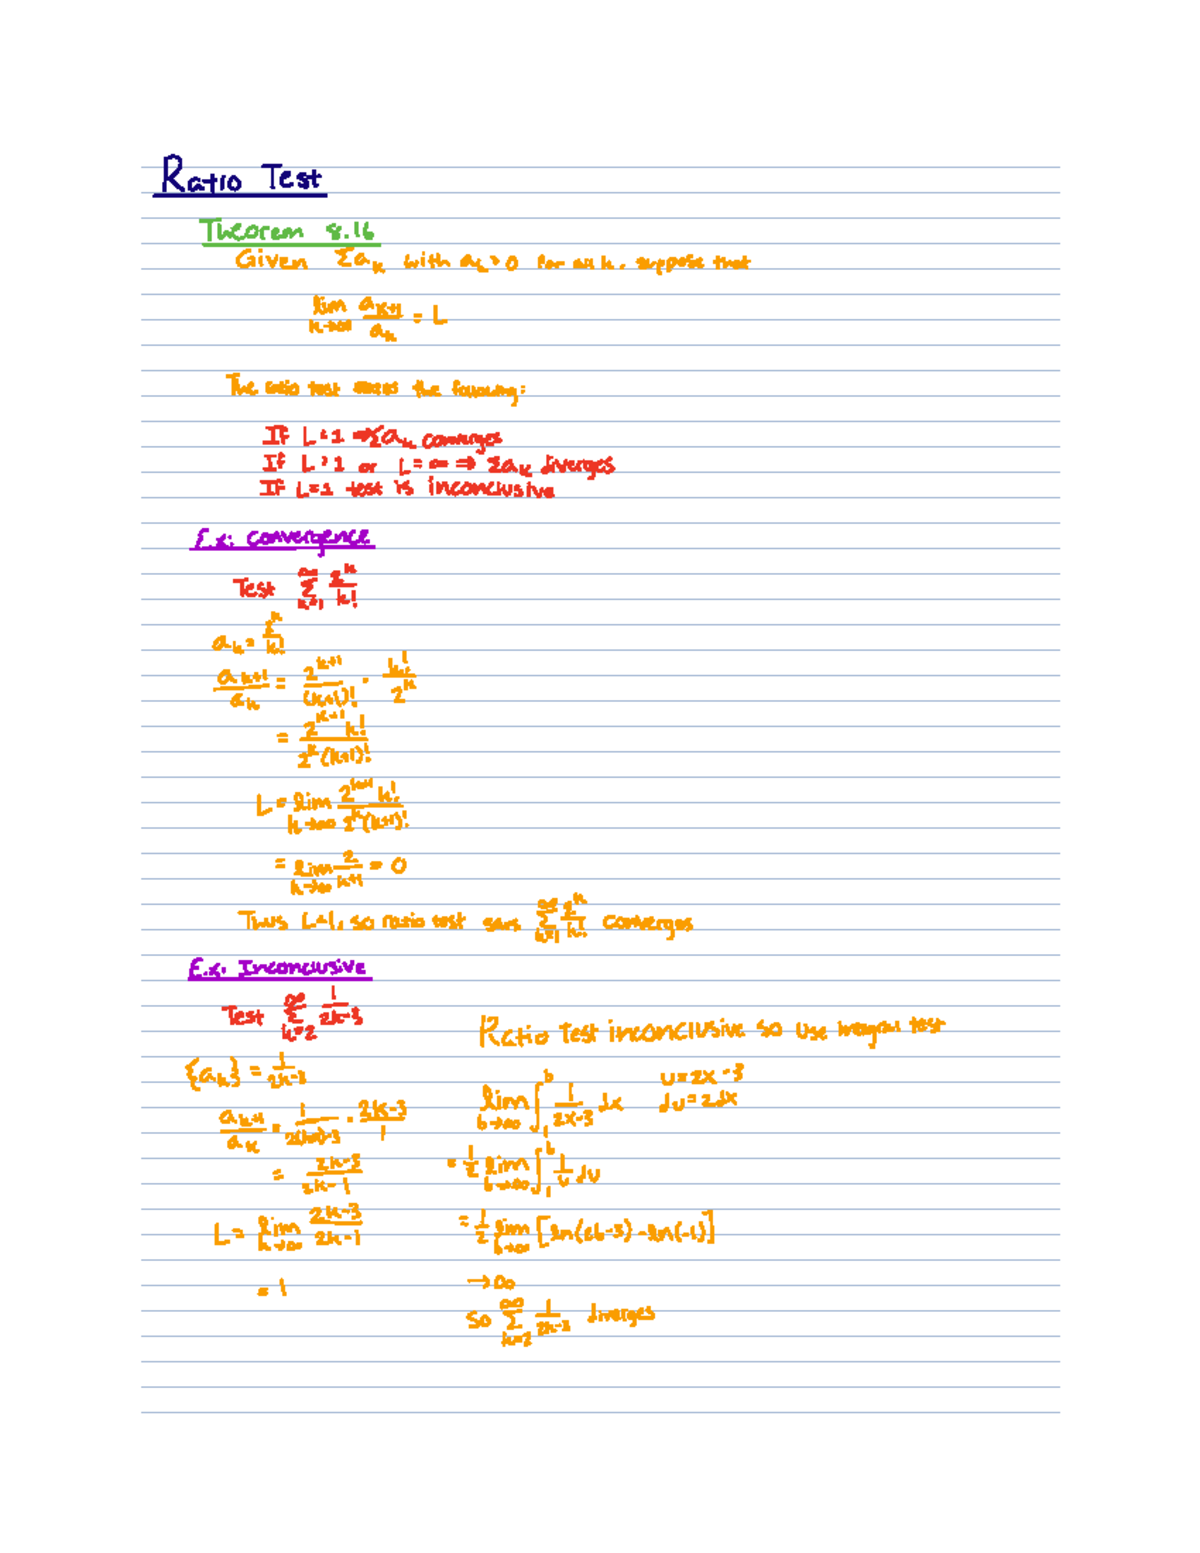 Ratio Test
Theorem 8.16
Given Σa_k with a_k > 0 for all k, suppose that
lim k→∞ a_{k+1}/a_k = L
The ratio test states the following:
If L<1 ⇒ Σa_k converges
If L>1 or L=∞ ⇒ Σa_k diverges
If L=1 test is inconclusive
Ex: Convergence
Test Σ_{k=1}^∞ 2^k/k!
a_k = 2^k/k!
a_{k+1}/a_k = 2^{k+1}/(k+1)! · k!/2^k
= 2^{k+1} k!/2^k (k+1)!
L = lim k→∞ 2^{k+1} k!/2^k (k+1)!
= lim k→∞ 2/k+1 = 0
Thus L<1, so ratio test says Σ_{k=1}^∞ 2^k/k! converges
Ex: Inconclusive
Test Σ_{k=2}^∞ 1/2k-3
{a_k} = 1/2k-3
a_{k+1}/a_k = 1/2(k+1)-3 · 2k-3/1
= 2k-3/2k-1
L = lim k→∞ 2k-3/2k-1
= 1
Ratio Test inconclusive so use integral test
lim b→∞ ∫_1^b 1/2x-3 dx u=2x-3
du=2dx
= 1/2 lim b→∞ ∫_1^b 1/u du
= 1/2 lim b→∞ [ln(2b-3)-ln(-1)]
→∞
So Σ_{k=2}^∞ 1/2k-3 diverges